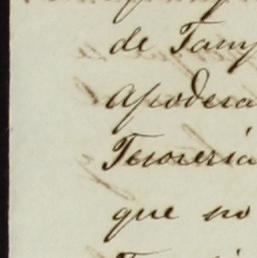 de Tam
Apodera
Tesoreria
que no